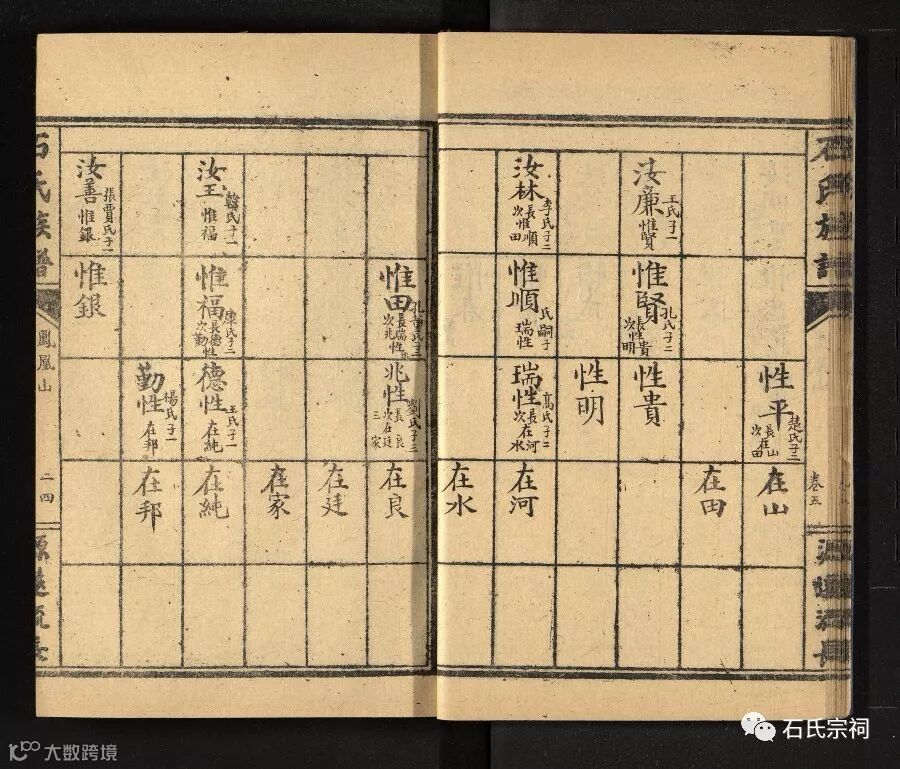 石氏族譜
卷五
源遠流長
性平 楚氏子二 長在山 次在田
在山
在田
汝廉 王氏子一 惟賢
惟賢 孔氏子二 長性貴 次性明
性貴
性明
汝林 李氏子二 長惟順 次惟田
惟順 氏嗣子 瑞性
瑞性 高氏子二 長在河 次在水
在河
在水
惟田
長瑞性 次兆性
兆性 劉氏子三 長在良 次在廷 三家
在良
在廷
在家
汝王 韓氏子一 惟福
惟福 康氏子二 長德性 次勤性
德性 王氏子一 在純
在純
勤性 楊氏子一 在邦
在邦
汝善 張賈氏子一 惟銀
惟銀
石氏族譜
鳳凰山
二四
源遠流長
石氏宗祠
大数跨境